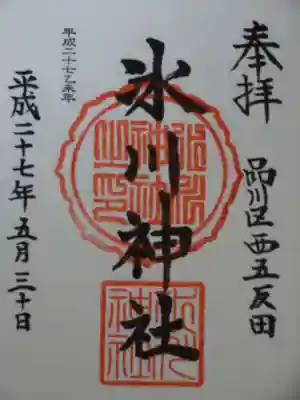 奉拝
品川区西五反田
氷川神社
平成二十七乙未年
平成二十七年五月三十日